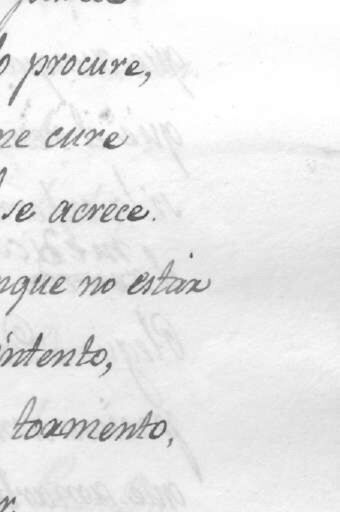 procure,
me cure
se acrece.
nque no estar
intento,
tormento,